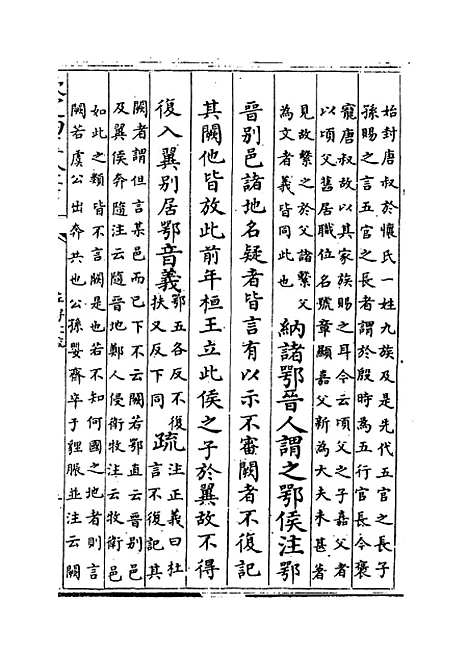 始封唐叔於懷氏一姓九族及是先代五官之長子
孫賜之言五官之長者謂於殷時為五行官長今褒
寵唐叔故以其家族賜之耳今云頃父之子嘉父者
以頃父舊居職位名號章顯嘉父新為大夫未甚著
見故繫之於父諸繫父
為文者義皆同此也
納諸鄂晉人謂之鄂侯注鄂
晉別邑諸地名疑者皆言有以示不審闕者不復記
其闕他皆放此前年桓王立此侯之子於翼故不得
復入翼別居鄂音義
鄂五各反不復
扶又反下同
疏
注正義曰杜
言不復記其
闕者謂但言某邑而已下不云闕若鄂直云晉別邑
及翼侯奔隨注云隨晉地鄭人侵衛牧注云牧衛邑
如此之類皆不言闕是也若不知何國之地者則言
闕若虞公出奔共也公孫嬰齊卒于貍脤並注云闕